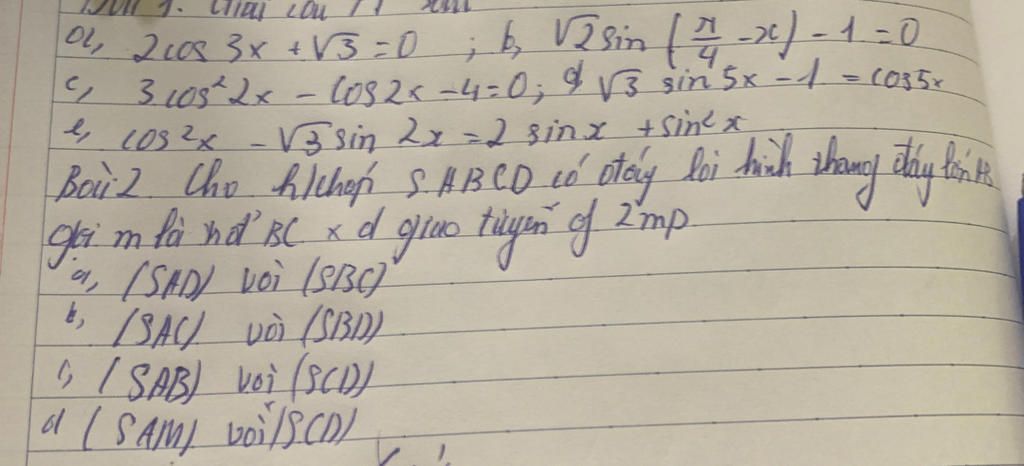 a, 2cos 3x + √3 = 0 ; b, √2 sin (π/4 - x) - 1 = 0
c, 3 cos² 2x - cos 2x - 4 = 0 ; d √3 sin 5x - 1 = cos 5x
e, cos²x - √3 sin 2x = 2 sin x + sin² x
Bài 2 Cho h/chóp S.ABCD có đáy là hình thang đáy lớn AB
gọi m là BC x d giao tuyến of 2mp
a, (SAD) với (SBC)
b, (SAC) với (SBD)
c, (SAB) với (SCD)
d (SAM) với (SCD)